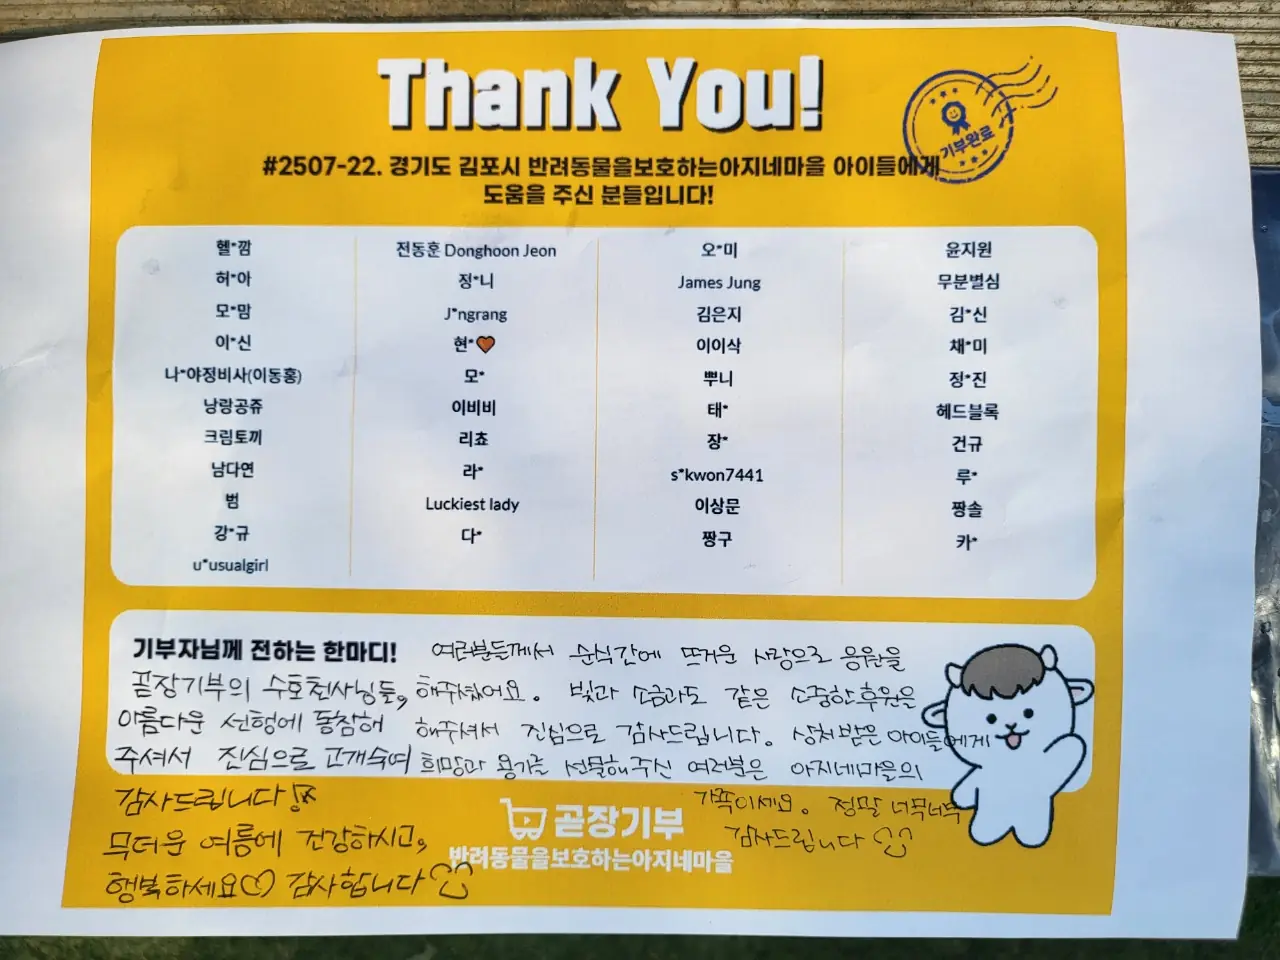 Thank You!
기부완료
#2507-22. 경기도 김포시 반려동물을보호하는아지네마을 아이들에게
도움을 주신 분들입니다!
헬*깜
허*아
모*맘
이*신
나*야정비사(이동홍)
낭랑공쥬
크림토끼
남다연
범
강*규
u*usualgirl
전동훈 Donghoon Jeon
정*니
J*ngrang
현*🧡
모*
이비비
리쵸
라*
Luckiest lady
다*
오*미
James Jung
김은지
이이삭
뿌니
태*
장*
s*kwon7441
이상문
짱구
윤지원
무분별심
김*신
채*미
정*진
헤드블록
건규
루*
짱솔
카*
기부자님께 전하는 한마디!
곧장기부의 수호천사님들,
아름다운 선행에 동참해
주셔서 진심으로 고개숙여
감사드립니다!
무더운 여름에 건강하시고,
행복하세요♡ 감사합니다
여러분들께서 순식간에 뜨거운 사랑으로 응원을
해주셨어요. 빛과 소금과도 같은 소중한후원은
해주셔서 진심으로 감사드립니다. 상처받은 아이들에게
희망과 용기를 선물해주신 여러분은 아지네마을의
가족이세요. 정말 너무너무
감사드립니다
곧장기부
반려동물을보호하는아지네마을